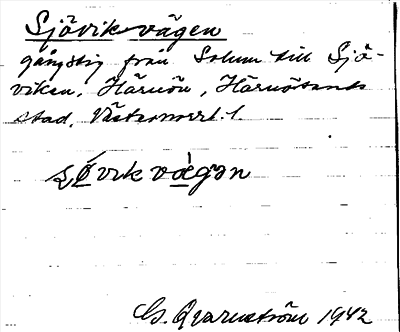 Sjövikvägen
gångstig från Solum till Sjö-
viken, Härnön, Härnösands
stad, Västernorrl. l.
vik vägən
G. Qvarnström 1942